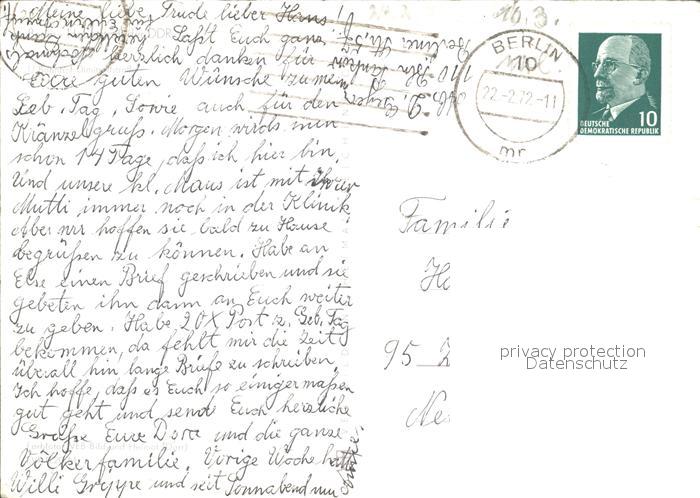 Meine liebe Trude lieber Hans!
Laßt Euch ganz
herzlich danken für
Eure guten Wünsche zu mein
Geb. Tag, Sowie auch für den
Kränzelgruß. Morgen wirds nun
schon 14 Tage, daß ich hier bin,
Und unsere kl. Maus ist mit Ihrer
Mutti immer noch in der Klinik
Aber wir hoffen sie bald zu Hause
begrüßen zu können. Habe an
Else einen Brief geschrieben und sie
gebeten ihn dann an Euch weiter
zu geben. Habe 20X Post z. Geb. Tag
bekommen, da fehlt mir die Zeit
überall hin lange Briefe zu schreiben.
Ich hoffe, daß es Euch so einigermaßen
gut geht und sende Euch herzliche
Grüße Eure Dora und die ganze
Völkerfamilie. Vorige Woche hatte
Willi Grippe und seit Sonnabend nun
10.3.
BERLIN
110
22.-2.72.-11
mr
10
DEUTSCHE
DEMOKRATISCHE REPUBLIK
Familie
H
95
privacy protection
Datenschutz
110
Berlin